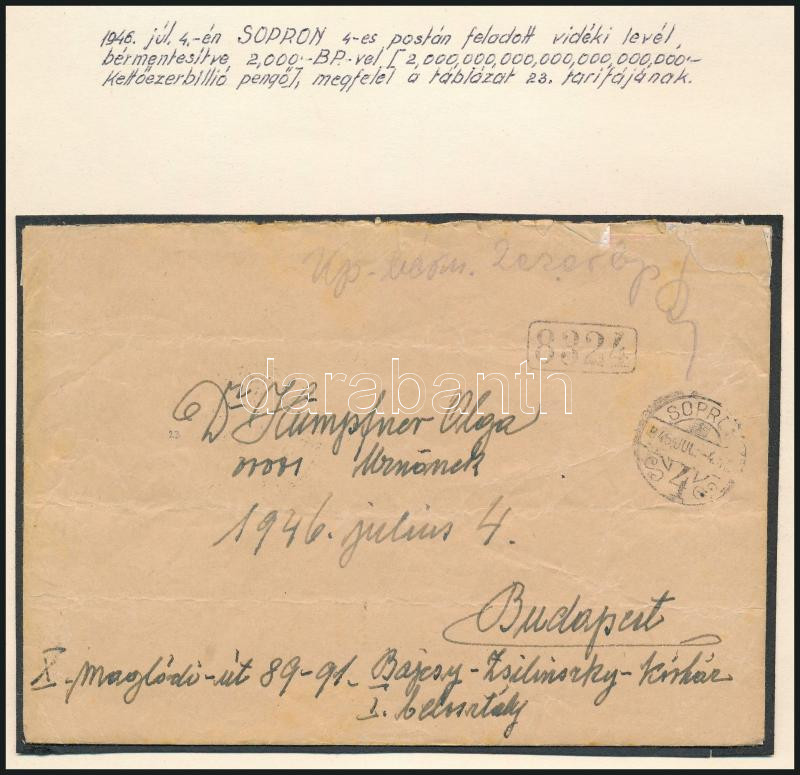 1946. júl. 4.-én SOPRON 4-es postán feladott vidéki levél,
bérmentesítve 2,000.-BP.-vel [2,000,000,000,000,000,000,000.-
Kettőezerbillió pengő], megfelel a táblázat 23. tarifájának.
Kp.
8324
darabanth
SOPRON
Dr Hümpfner Olga
Úrnőnek
4
1946. július 4.
Budapest
X. Maglódi-út 89-91. Bajcsy-Zsilinszky-Kórház
I. belosztály